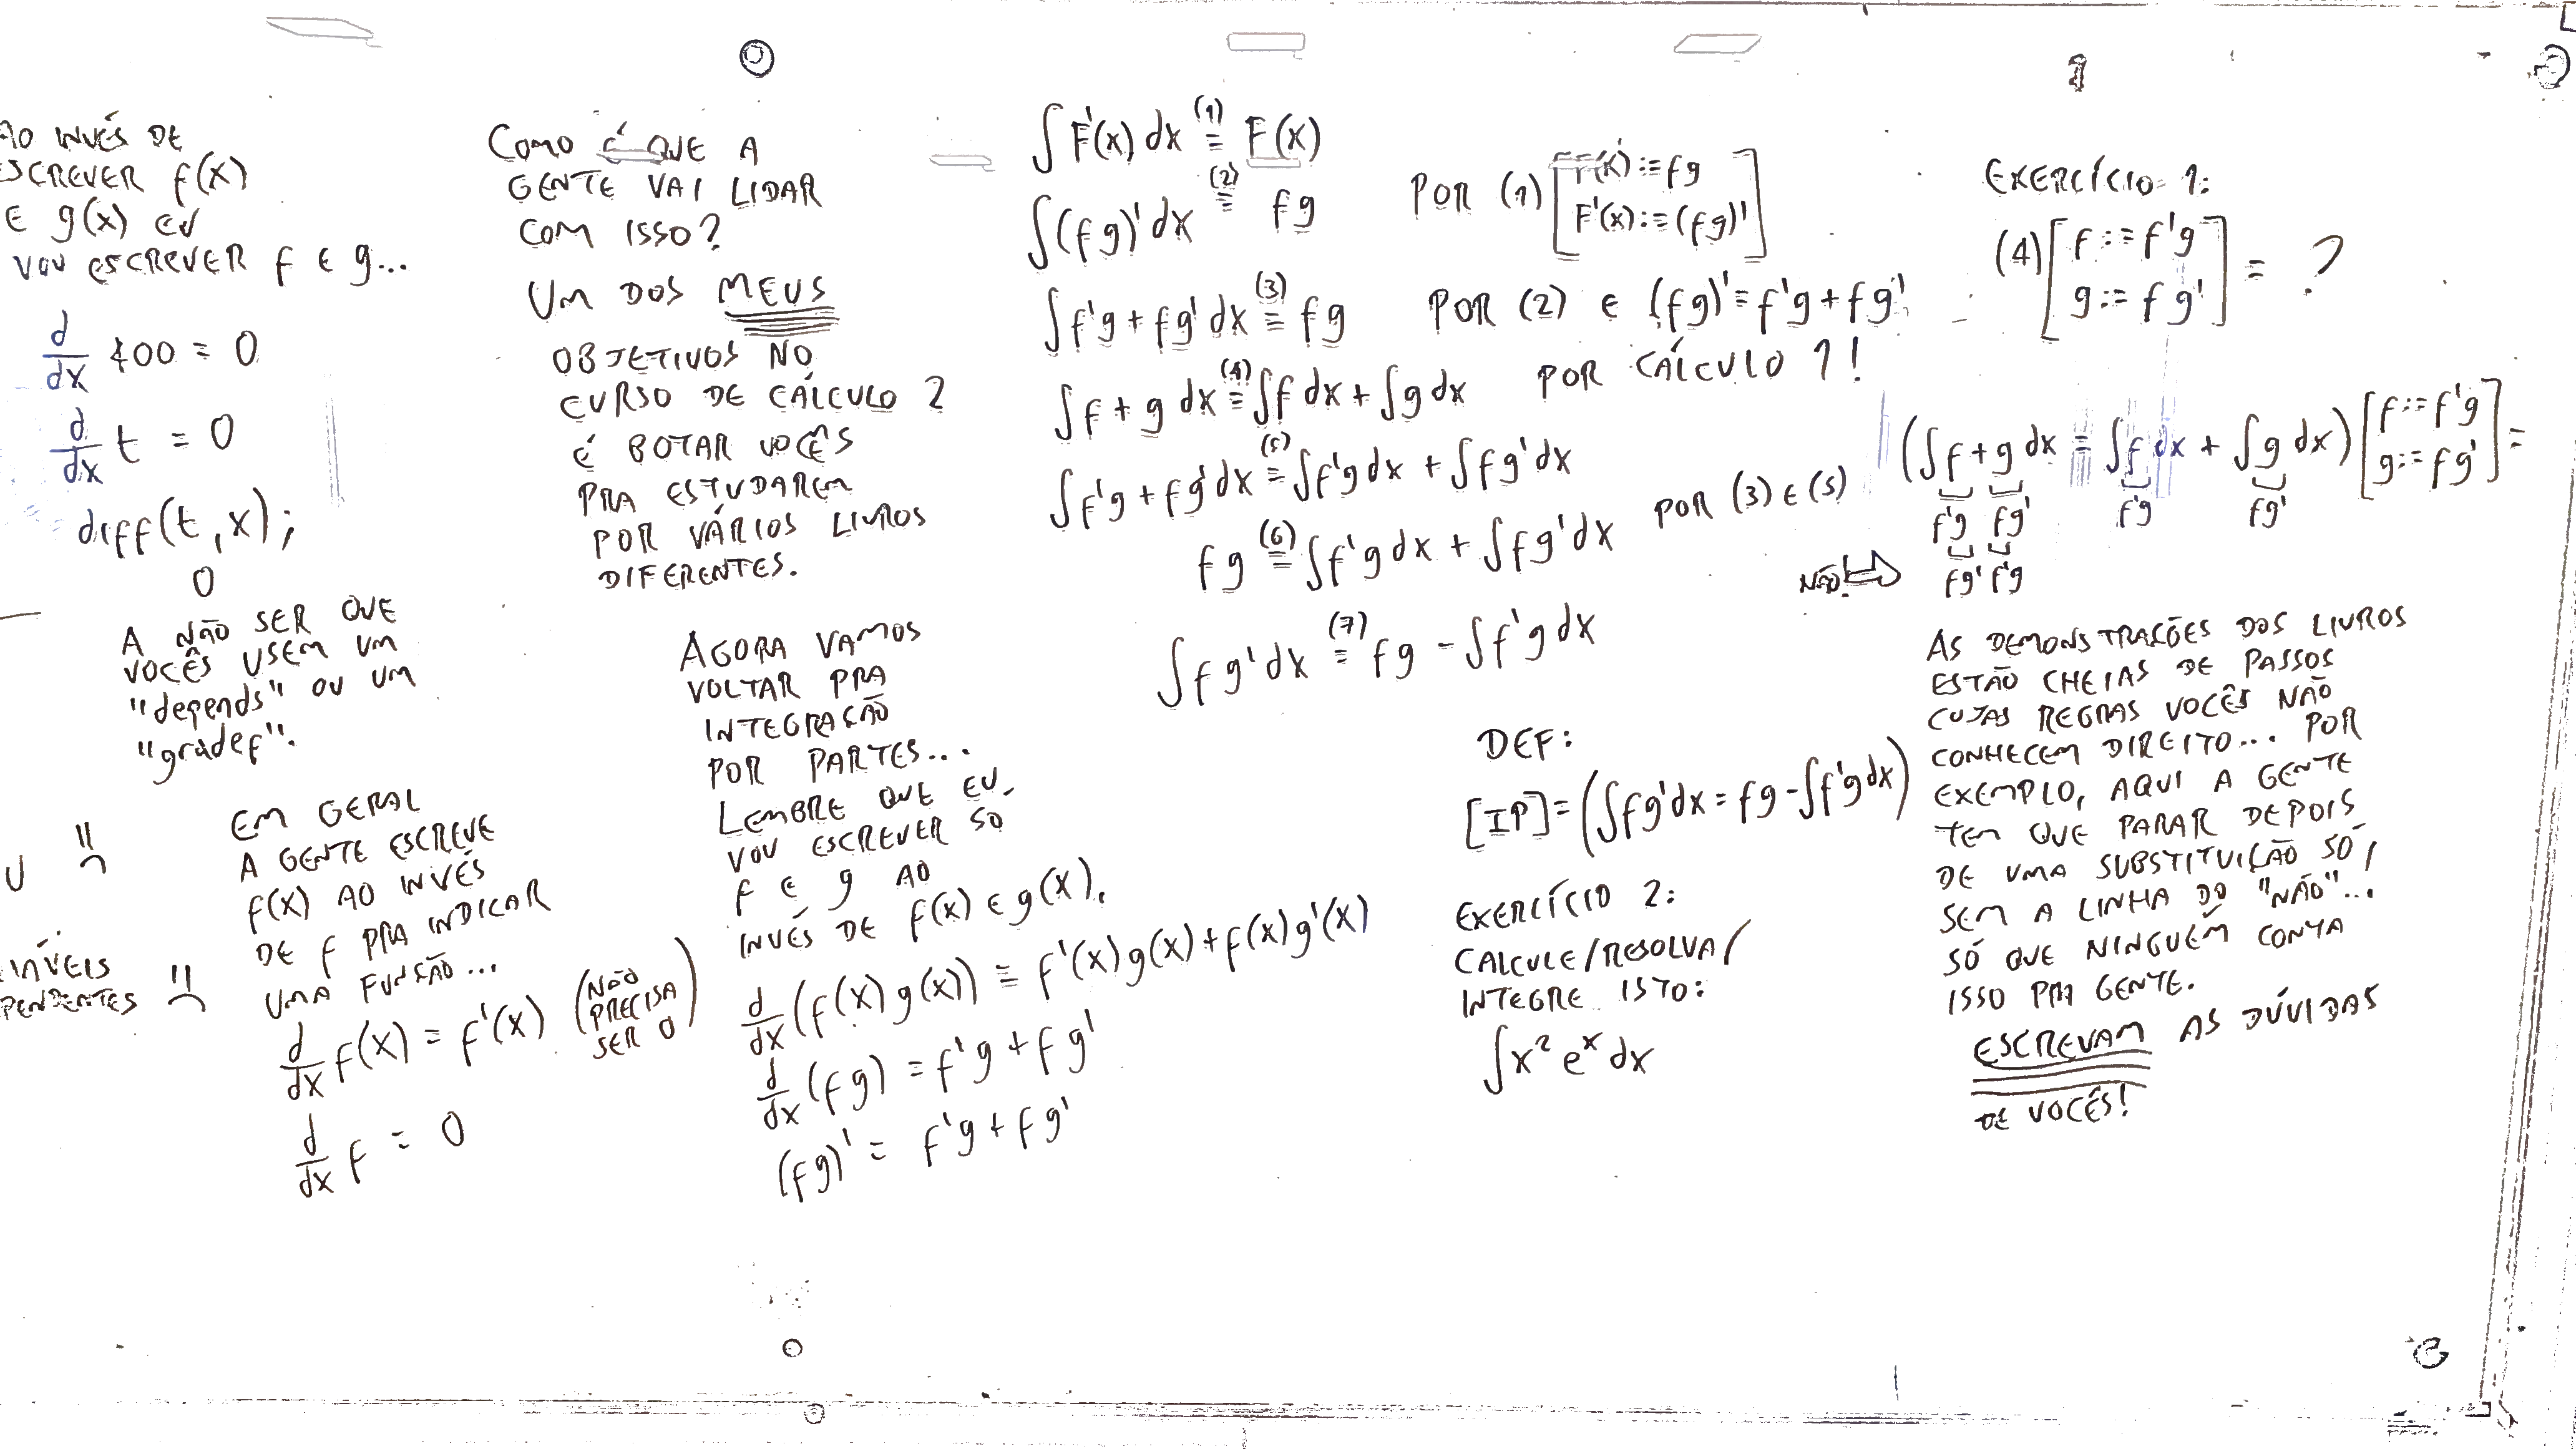 AO INVÉS DE
ESCREVER f(x)
E g(x) EU
VOU ESCREVER f E g...
d/dx 400 = 0
d/dx t = 0
diff(t,x);
0
A NÃO SER QUE
VOCÊS USEM UM
"depends" OU UM
"gradef".
U :(
EM GERAL
A GENTE ESCREVE
f(x) AO INVÉS
DE f PRA INDICAR
UMA FUNÇÃO...
d/dx f(x) = f'(x) (NÃO
PRECISA
SER 0)
d/dx f = 0
COMO É QUE A
GENTE VAI LIDAR
COM ISSO?
UM DOS MEUS
OBJETIVOS NO
CURSO DE CÁLCULO 2
É BOTAR VOCÊS
PRA ESTUDAREM
POR VÁRIOS LIVROS
DIFERENTES.
AGORA VAMOS
VOLTAR PRA
INTEGRAÇÃO
POR PARTES...
LEMBRE QUE EU
VOU ESCREVER SÓ
f E g AO
INVÉS DE f(x) E g(x).
d/dx (f(x)g(x)) = f'(x)g(x)+f(x)g'(x)
d/dx (fg) = f'g + fg'
(fg)' = f'g + fg'
∫F'(x) dx (1)= F(x)
∫(fg)' dx (2)= fg POR (1) [F(x):=fg
F'(x):=(fg)']
∫f'g + fg' dx (3)= fg POR (2) E (fg)'=f'g+fg'
∫f + g dx (4)= ∫f dx + ∫g dx POR CÁLCULO 1!
∫f'g + fg' dx (5)= ∫f'g dx + ∫fg' dx
fg (6)= ∫f'g dx + ∫fg' dx POR (3) E (5)
∫fg' dx (7)= fg - ∫f'g dx
DEF:
[IP] = (∫fg'dx = fg - ∫f'g dx)
EXERCÍCIO 2:
CALCULE/RESOLVA/
INTEGRE ISTO:
∫x² eˣ dx
EXERCÍCIO 1:
(4) [f:=f'g
g:=fg'] = ?
(∫f + g dx = ∫f dx + ∫g dx) [f:=f'g
g:=fg'] =
f'g fg' f'g fg'
NÃO! ⇒ fg' f'g
AS DEMONSTRAÇÕES DOS LIVROS
ESTÃO CHEIAS DE PASSOS
CUJAS REGRAS VOCÊS NÃO
CONHECEM DIREITO... POR
EXEMPLO, AQUI A GENTE
TEM QUE PARAR DEPOIS
DE UMA SUBSTITUIÇÃO SÓ,
SEM A LINHA DO "NÃO"...
SÓ QUE NINGUÉM CONTA
ISSO PRA GENTE.
ESCREVAM AS DÚVIDAS
DE VOCÊS!